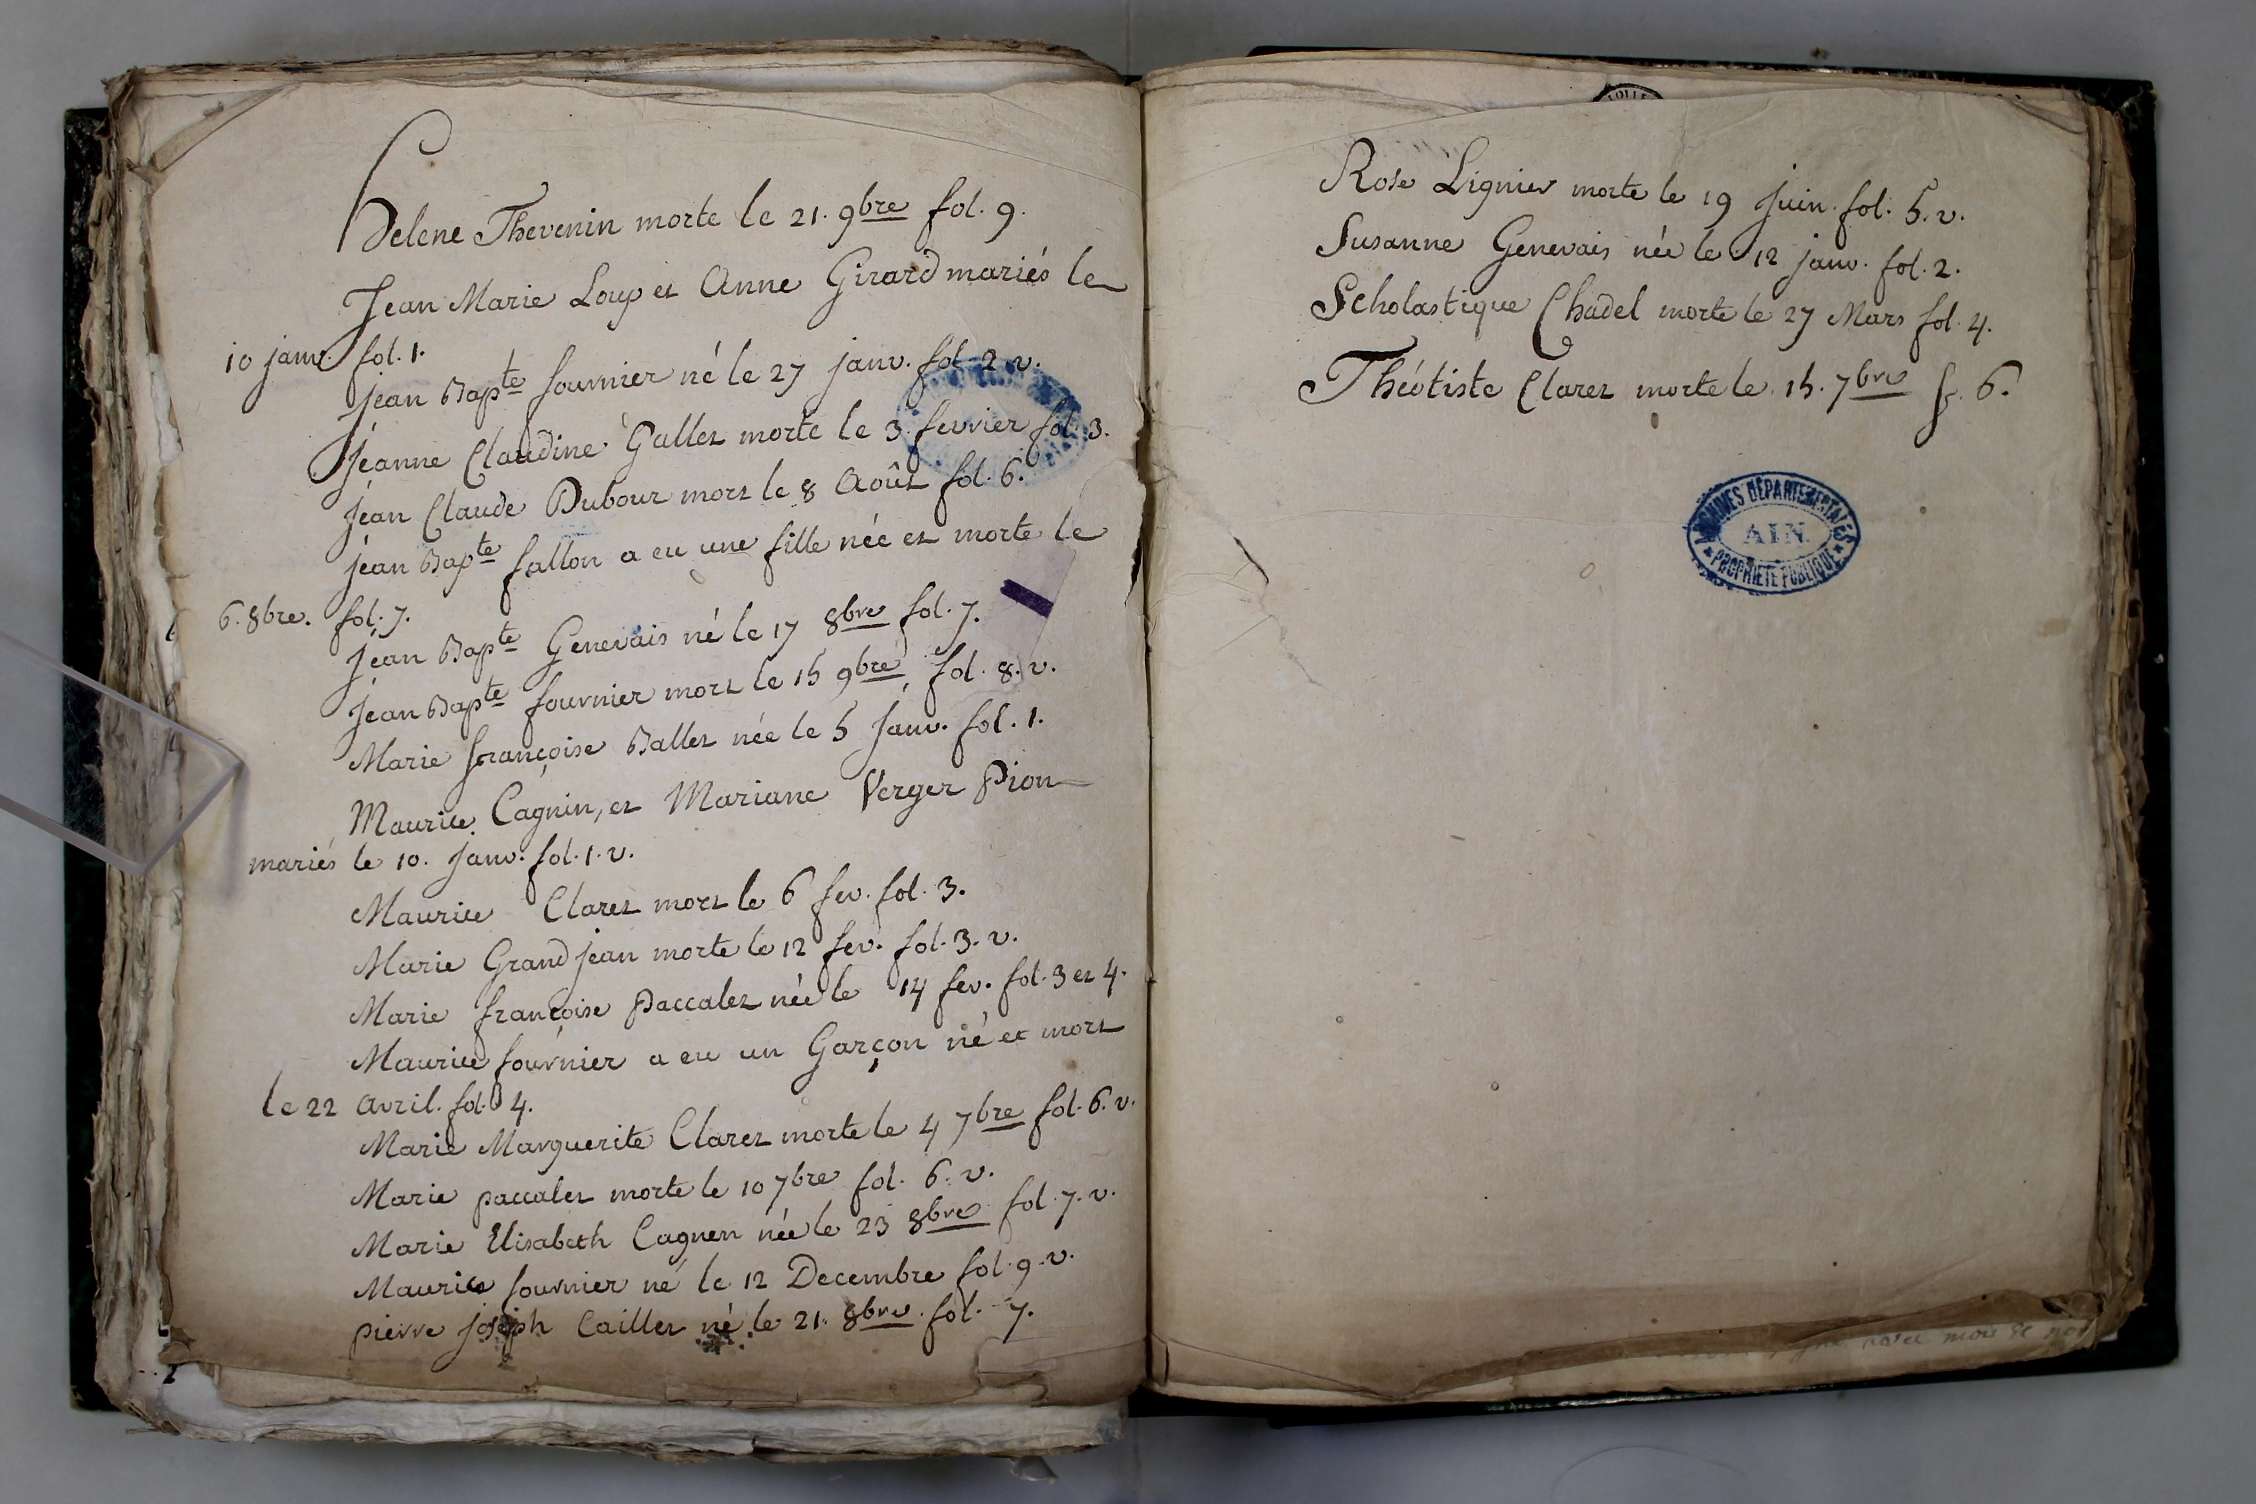 Helene Thevenin morte le 21. 9bre fol. 9.
Jean Marie Loup et Anne Girard mariés le
10 janv. fol. 1.
jean Bapte fournier né le 27 janv. fol. 2. v.
jeanne Claudine Gallet morte le 3. fevrier fol. 3.
jean Claude Dubour mort le 8 Août fol. 6.
jean Bapte fallon a eu une fille née et morte le
6. 8bre. fol. 7.
jean Bapte Genevais né le 17 8bre fol. 7.
jean Bapte fournier mort le 15 9bre, fol. 8. v.
Marie françoise Ballet née le 5 janv. fol. 1.
Maurice Cagnin, et Mariane Verger Pion
mariés le 10. janv. fol. 1. v.
Maurice Claret mort le 6 fev. fol. 3.
Marie Grandjean morte le 12 fev. fol. 3. v.
Marie françoise paccalet née le 14 fev. fol. 3 et 4.
Maurice fournier a eu un Garçon né et mort
le 22 Avril. fol. 4.
Marie Marguerite Claret morte le 4 7bre fol. 6. v.
Marie paccalet morte le 10 7bre fol. 6. v.
Marie Elisabeth Cagnen née le 23 8bre fol. 7. v.
Maurice fournier né le 12 Decembre fol. 9. v.
pierre joseph Caillet né le 21. 8bre. fol. 7.
Rose Lignier morte le 19 juin. fol. 5. v.
Susanne Genevais née le 12 janv. fol. 2.
Scholastique Chadel morte le 27 Mars fol. 4.
Théotiste Claret morte le 15. 7bre f. 6.
ARCHIVES DÉPARTEMENTALES
AIN
PROPRIÉTÉ PUBLIQUE